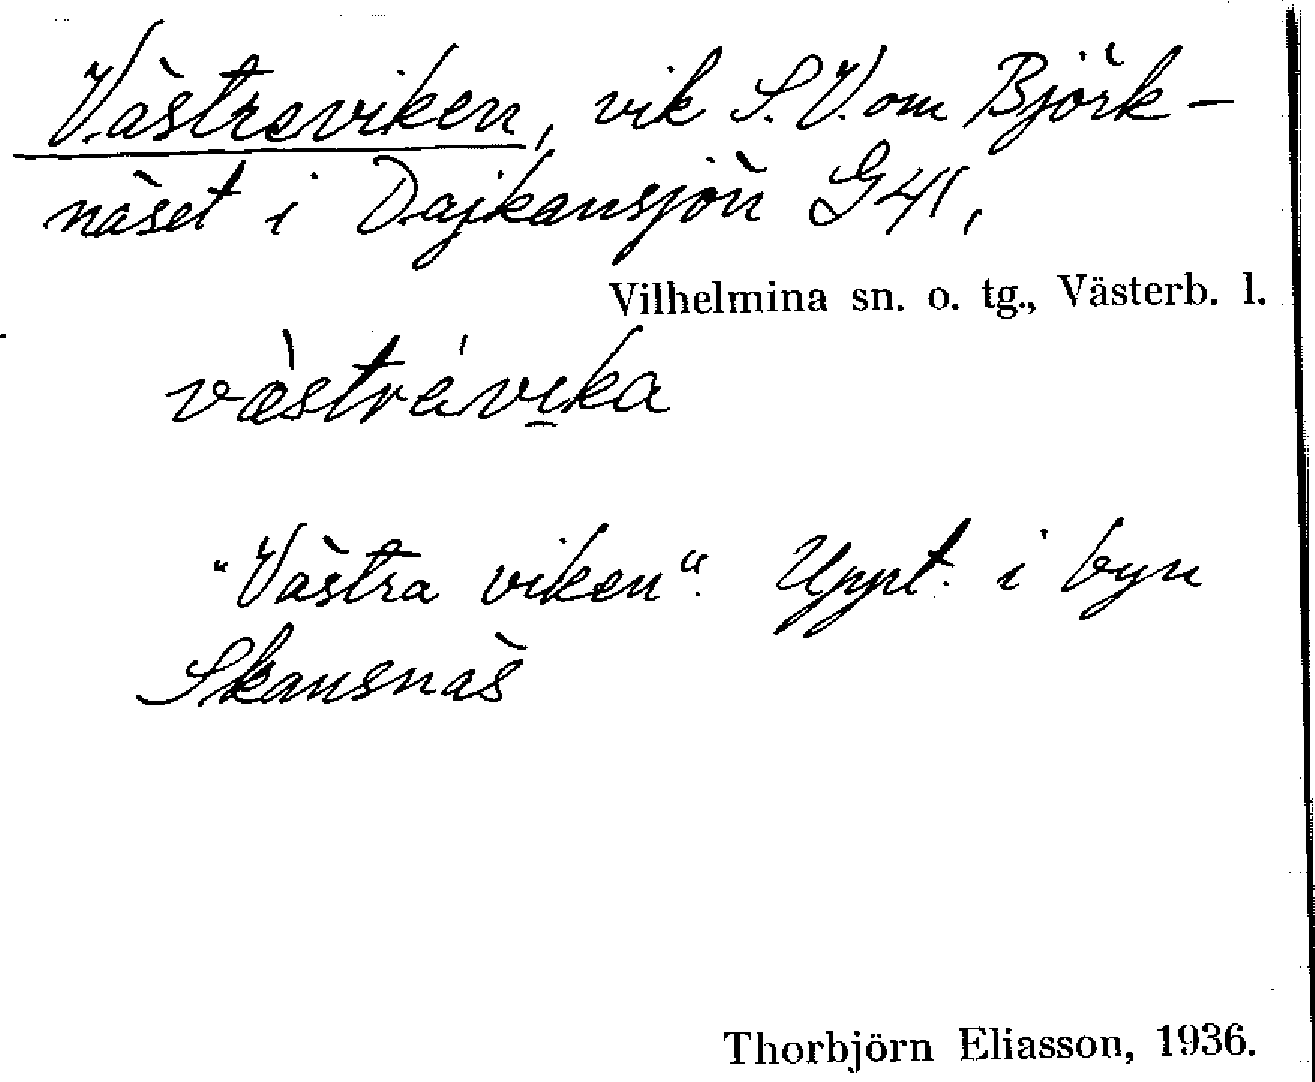 Västraviken, vik S.V. om Björk-
näset i Dajkansjön G 41,
Vilhelmina sn. o. tg., Västerb. l.
væ̀strávika
"Västra viken". Uppt. i byn
Skansnäs
Thorbjörn Eliasson, 1936.